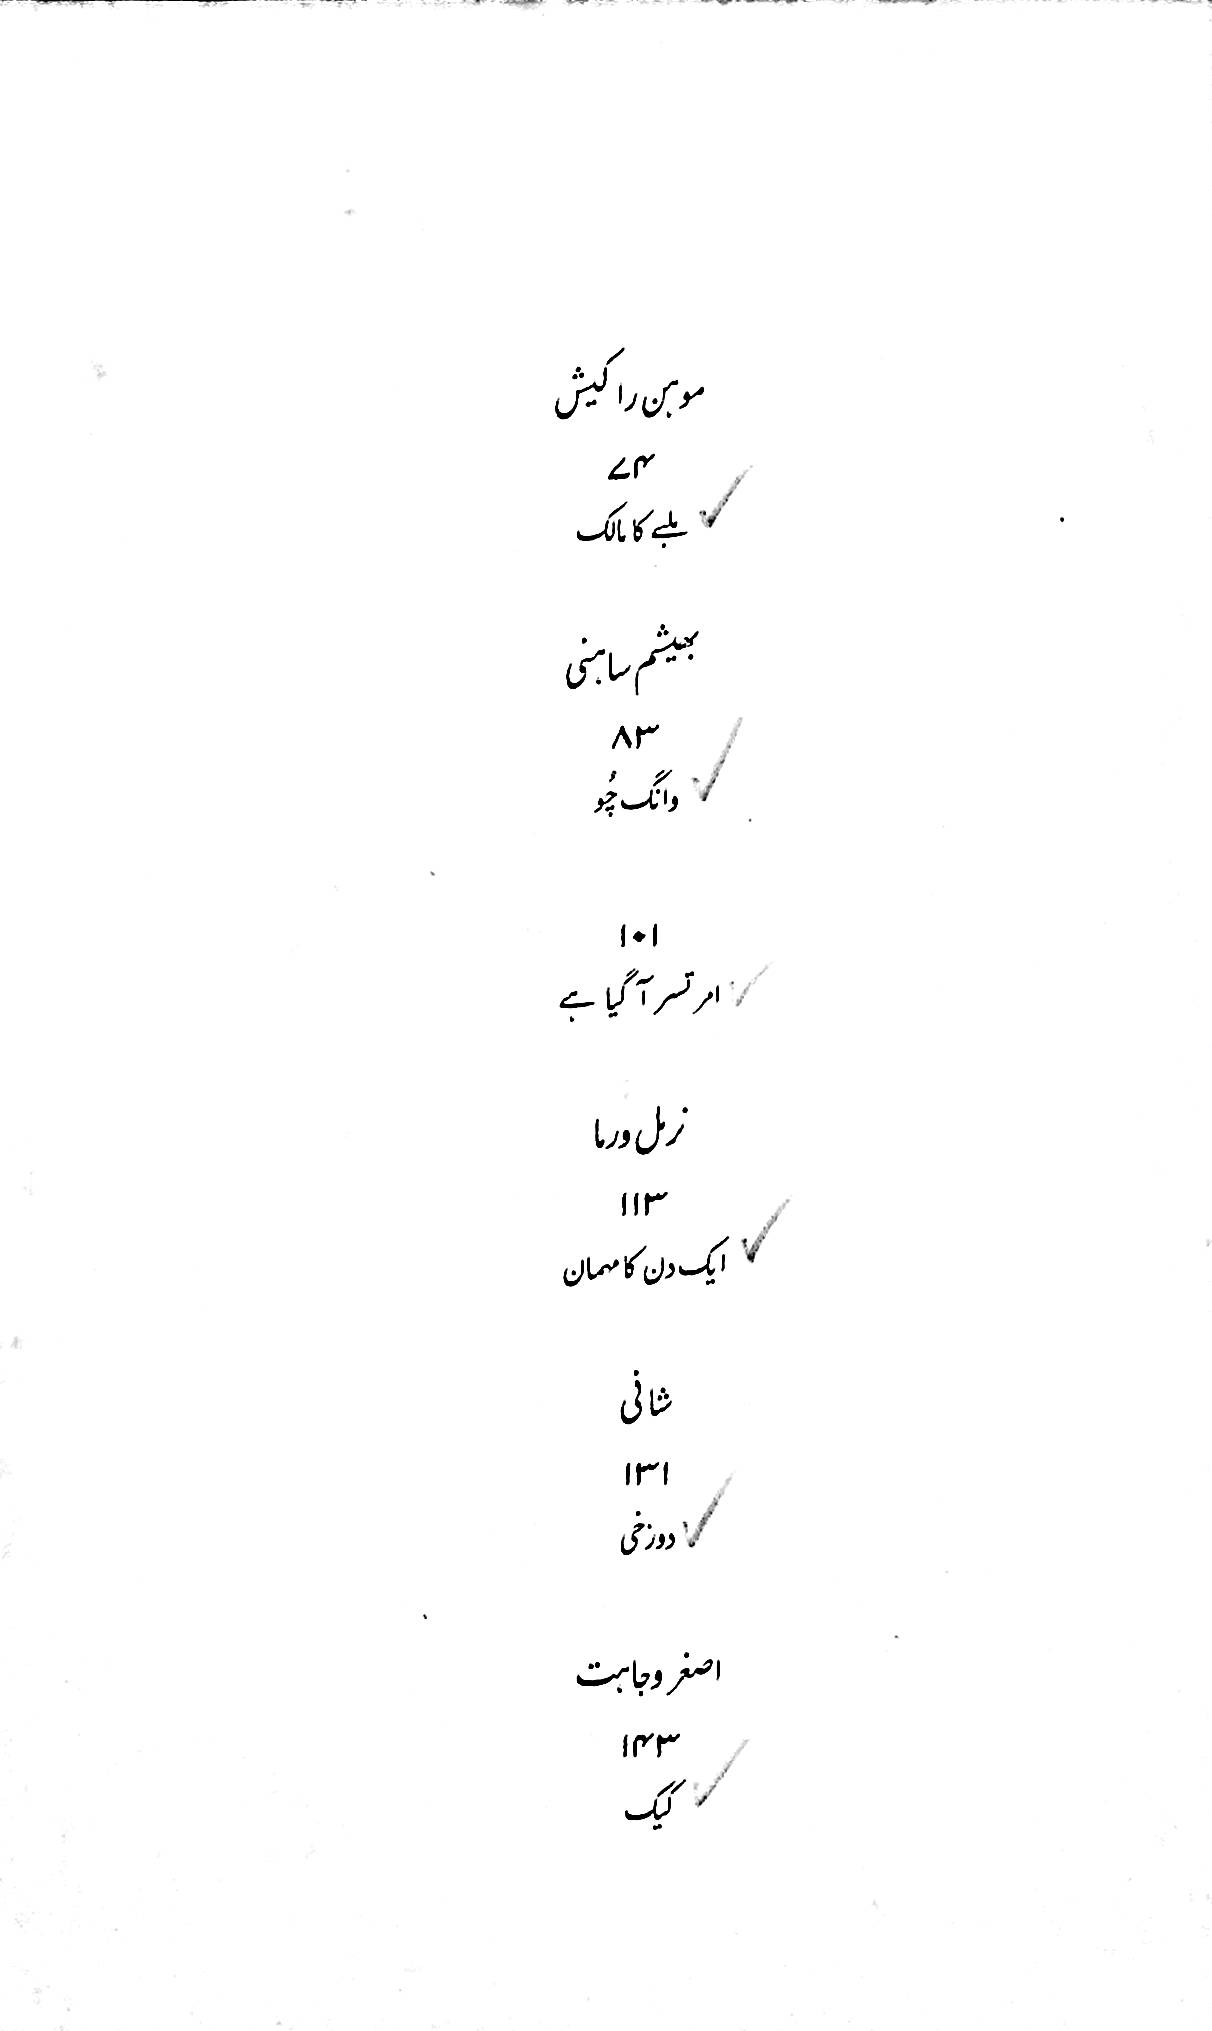 موہن راکیش
۷۴
ملبے کا مالک
بھیشم ساہنی
۸۳
وانگ چُو
۱۰۱
امرتسر آ گیا ہے
نرمل ورما
۱۱۳
ایک دن کا مہمان
شانی
۱۳۱
دوزخی
اصغر وجاہت
۱۴۳
کیک